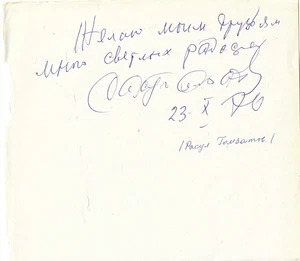 Желаю моим друзьям
много светлых
23 X 76
/Расул Гамзатов/